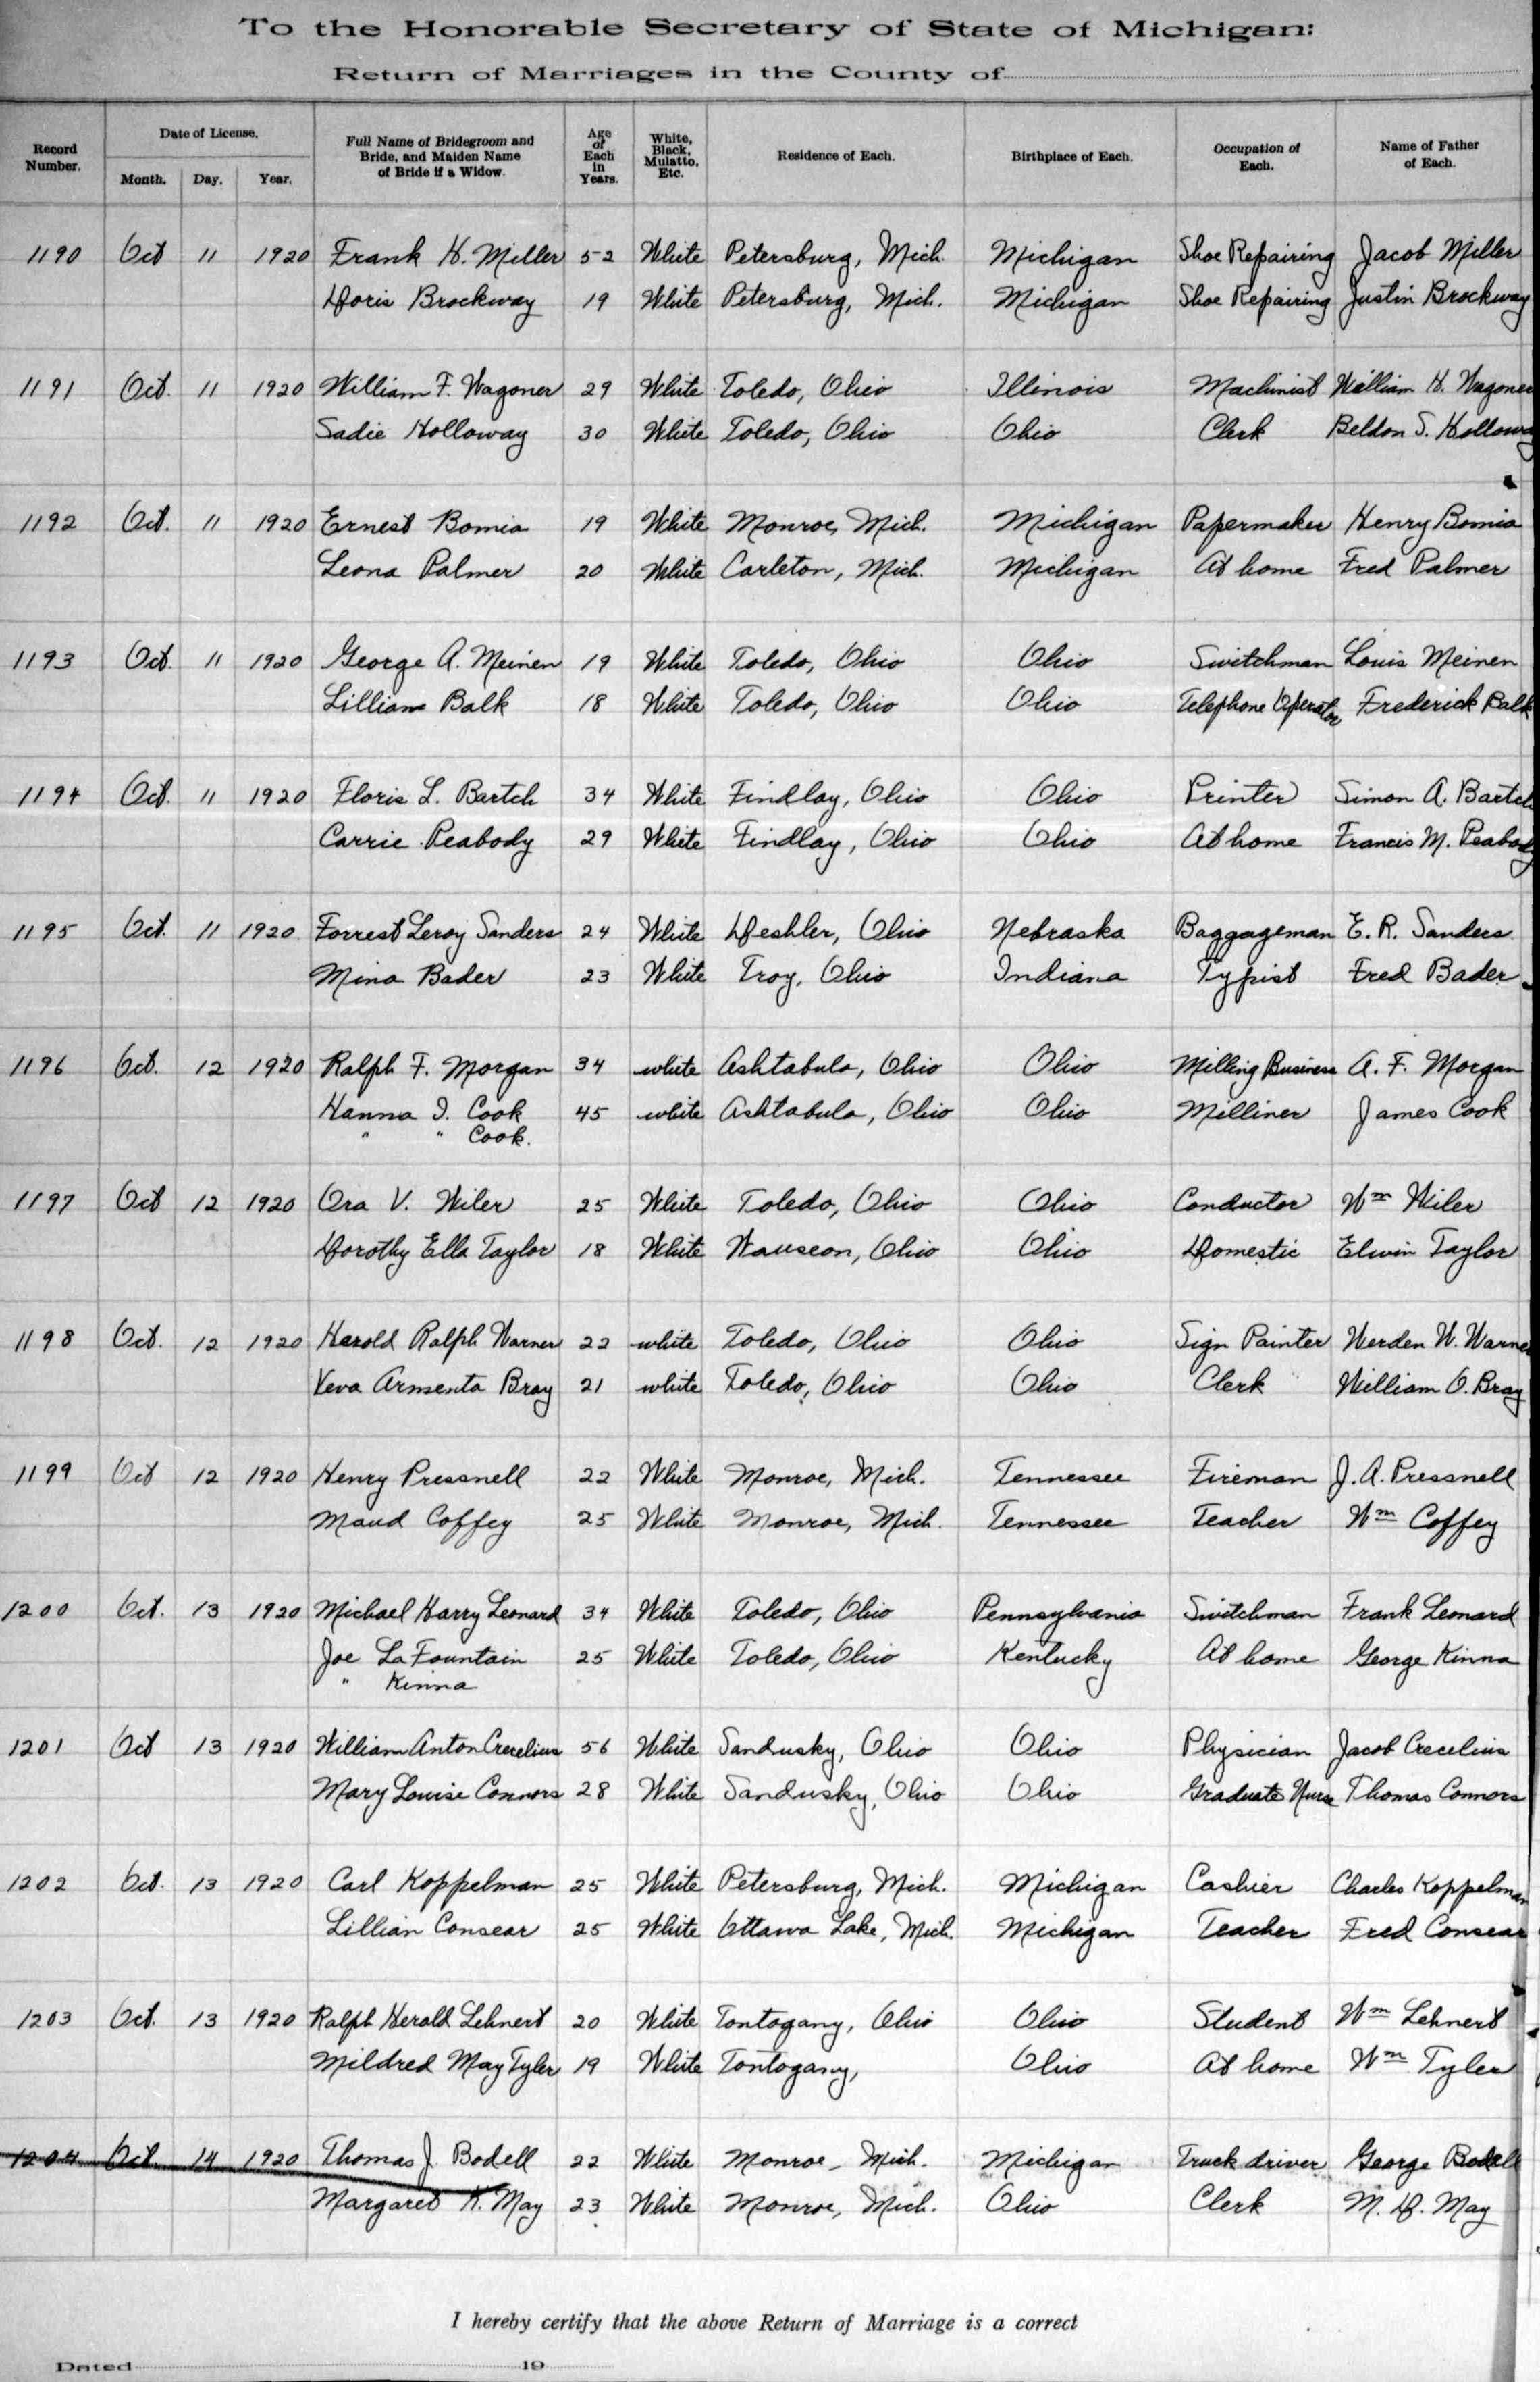 To the Honorable Secretary of State of Michigan:
Return of Marriages in the County of
Record Number. Date of License. Month. Day. Year. Full Name of Bridegroom and Bride, and Maiden Name of Bride if a Widow. Age of Each in Years. White, Black, Mulatto, Etc. Residence of Each. Birthplace of Each. Occupation of Each. Name of Father of Each.
1190 Oct 11 1920 Frank H. Miller 52 White Petersburg, Mich. Michigan Shoe Repairing Jacob Miller
Doris Brockway 19 White Petersburg, Mich. Michigan Shoe Repairing Justin Brockway
1191 Oct. 11 1920 William F. Wagoner 29 White Toledo, Ohio Illinois Machinist William H. Wagoner
Sadie Holloway 30 White Toledo, Ohio Ohio Clerk Beldon S. Holloway
1192 Oct. 11 1920 Ernest Bomia 19 White Monroe, Mich. Michigan Papermaker Henry Bomia
Leona Palmer 20 White Carleton, Mich. Michigan At home Fred Palmer
1193 Oct. 11 1920 George A. Meinen 19 White Toledo, Ohio Ohio Switchman Louis Meinen
Lillian Balk 18 White Toledo, Ohio Ohio Telephone Operator Frederick Balk
1194 Oct. 11 1920 Floris L. Bartch 34 White Findlay, Ohio Ohio Printer Simon A. Bartch
Carrie Peabody 29 White Findlay, Ohio Ohio At home Francis M. Peabody
1195 Oct. 11 1920 Forrest Leroy Sanders 24 White Deshler, Ohio Nebraska Baggageman E. R. Sanders
Mina Bader 23 White Troy, Ohio Indiana Typist Fred Bader
1196 Oct. 12 1920 Ralph F. Morgan 34 white Ashtabula, Ohio Ohio Milling Business A. F. Morgan
Hanna I. Cook 45 white Ashtabula, Ohio Ohio Milliner James Cook
" " Cook.
1197 Oct 12 1920 Ora V. Wiler 25 White Toledo, Ohio Ohio Conductor Wm Wiler
Dorothy Ella Taylor 18 White Wauseon, Ohio Ohio Domestic Elwin Taylor
1198 Oct. 12 1920 Harold Ralph Warner 22 white Toledo, Ohio Ohio Sign Painter Werden W. Warner
Veva Armenta Bray 21 white Toledo, Ohio Ohio Clerk William O. Bray
1199 Oct 12 1920 Henry Pressnell 22 White Monroe, Mich. Tennessee Fireman J. A. Pressnell
Maud Coffey 25 White Monroe, Mich. Tennessee Teacher Wm Coffey
1200 Oct. 13 1920 Michael Harry Leonard 34 White Toledo, Ohio Pennsylvania Switchman Frank Leonard
Joe La Fountain 25 White Toledo, Ohio Kentucky At home George Kinna
" Kinna
1201 Oct 13 1920 William Anton Crecelius 56 White Sandusky, Ohio Ohio Physician Jacob Crecelius
Mary Louise Connors 28 White Sandusky, Ohio Ohio Graduate Nurse Thomas Connors
1202 Oct. 13 1920 Carl Koppelman 25 White Petersburg, Mich. Michigan Cashier Charles Koppelman
Lillian Consear 25 White Ottawa Lake, Mich. Michigan Teacher Fred Consear
1203 Oct. 13 1920 Ralph Herald Lehnert 20 White Tontogany, Ohio Ohio Student Wm Lehnert
Mildred May Tyler 19 White Tontogany, Ohio At home Wm Tyler
1204 Oct. 14 1920 Thomas J. Bodell 22 White Monroe, Mich. Michigan Truck driver George Bodell
Margaret K. May 23 White Monroe, Mich. Ohio Clerk M. D. May
I hereby certify that the above Return of Marriage is a correct
Dated 19